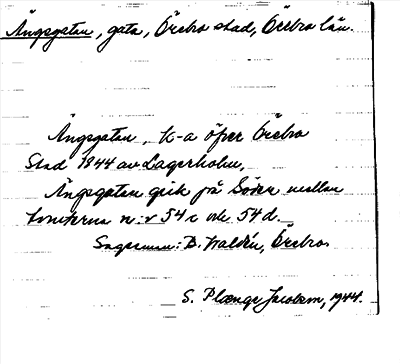 Ängsgatan, gata, Örebro stad, Örebro län.
Ängsgatan, K-a öfver Örebro
Stad 1844 av Lagerholm.
Ängsgatan gick på Söder mellan
tomterna n:r 54 c och 54 d.
Sagesman: B. Waldén, Örebro.
S. Plænge Jacobson, 1944.